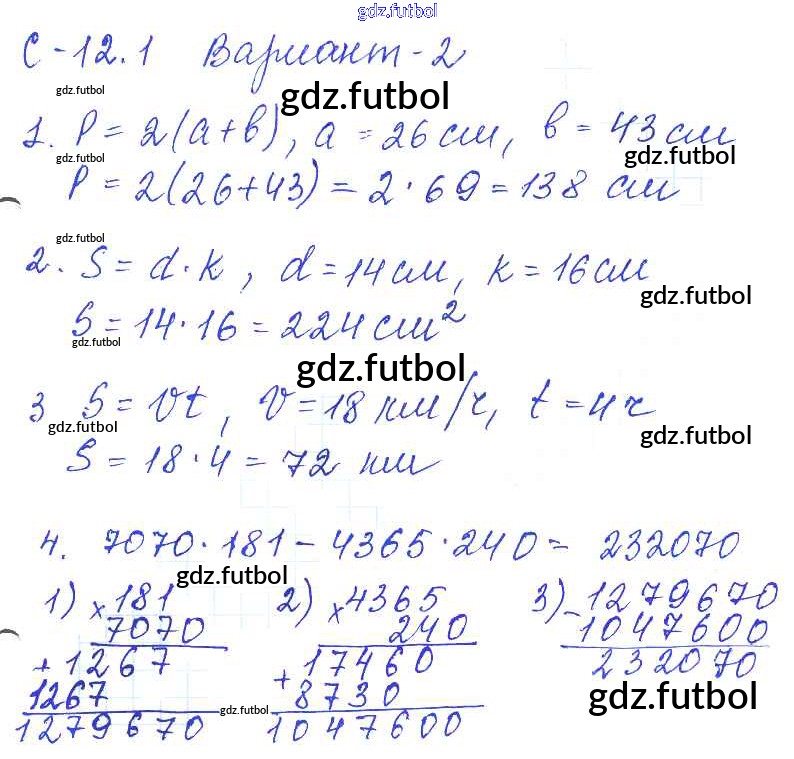 gdz.futbol
С-12.1 Вариант-2
gdz.futbol
gdz.futbol
1. P = 2(a+b), a = 26 см, b = 43 см
gdz.futbol
gdz.futbol
P = 2(26+43) = 2·69 = 138 см
gdz.futbol
2. S = d·k, d = 14 см, k = 16 см
gdz.futbol
S = 14·16 = 224 см²
gdz.futbol
gdz.futbol
3 S = vt, v = 18 км/ч, t = 4 ч
gdz.futbol
gdz.futbol
S = 18·4 = 72 км
4. 7070·181 - 4365·240 = 232070
gdz.futbol
1) × 181 2) × 4365 3) - 1279670
7070 240 1047600
+ 1267 + 17460 232070
1267 8730 gdz.futbol
1279670 gdz.futbol 1047600